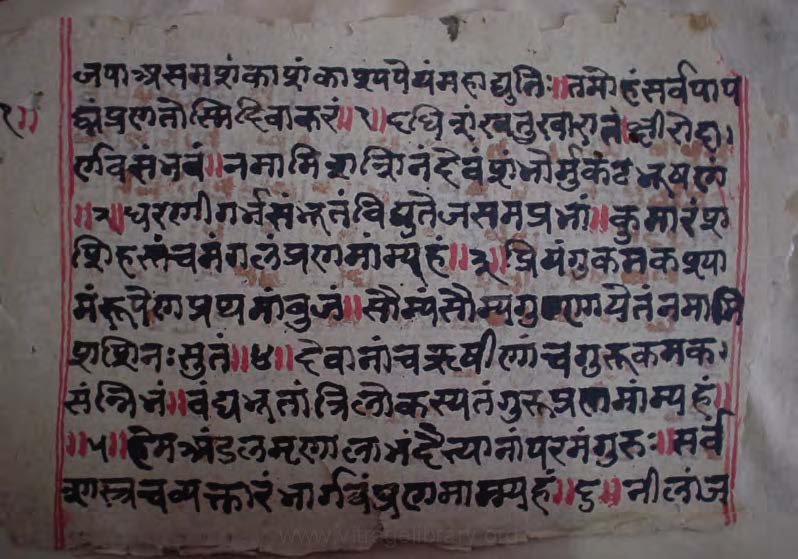 जपाञ्रसमशंकाशंकाश्यपेयंमहाद्युतिः॥तमोहंसर्वपाप
१॥ घ्नंप्रणतोस्मिदिवाकरं॥१॥दधिशंखतुखारातं॥क्षीरोदा।
र्णवसंभवं॥नमामिशशिनंदेवंशंभोर्मुकंटभूषणं
॥२॥धरणीगर्भसंभूतंविद्युतेजसमप्रभां॥कुमारंश
क्तिहस्तंचमंगलंप्रणमांम्यहं॥३॥प्रियंगुकमकश्या
मंरूपेणप्रथमाबुजं॥सौम्यंसौम्यगुणणयेतंनमामि
शशिनःसुतं॥४॥देवानांचऋषीणांचगुरूकमक।
संन्निभं॥वंद्यभूतांत्रिलोकस्यतंगुरूप्रणमांम्यहं॥
॥५॥हेमञ्यंडलमृणालाभंदैत्यानांपरमंगुरूः॥सर्व
शास्त्रचव्यक्तारंभार्गवंप्रणमाम्म्यहं॥६॥नीलांज
www.vitragelibrary.org